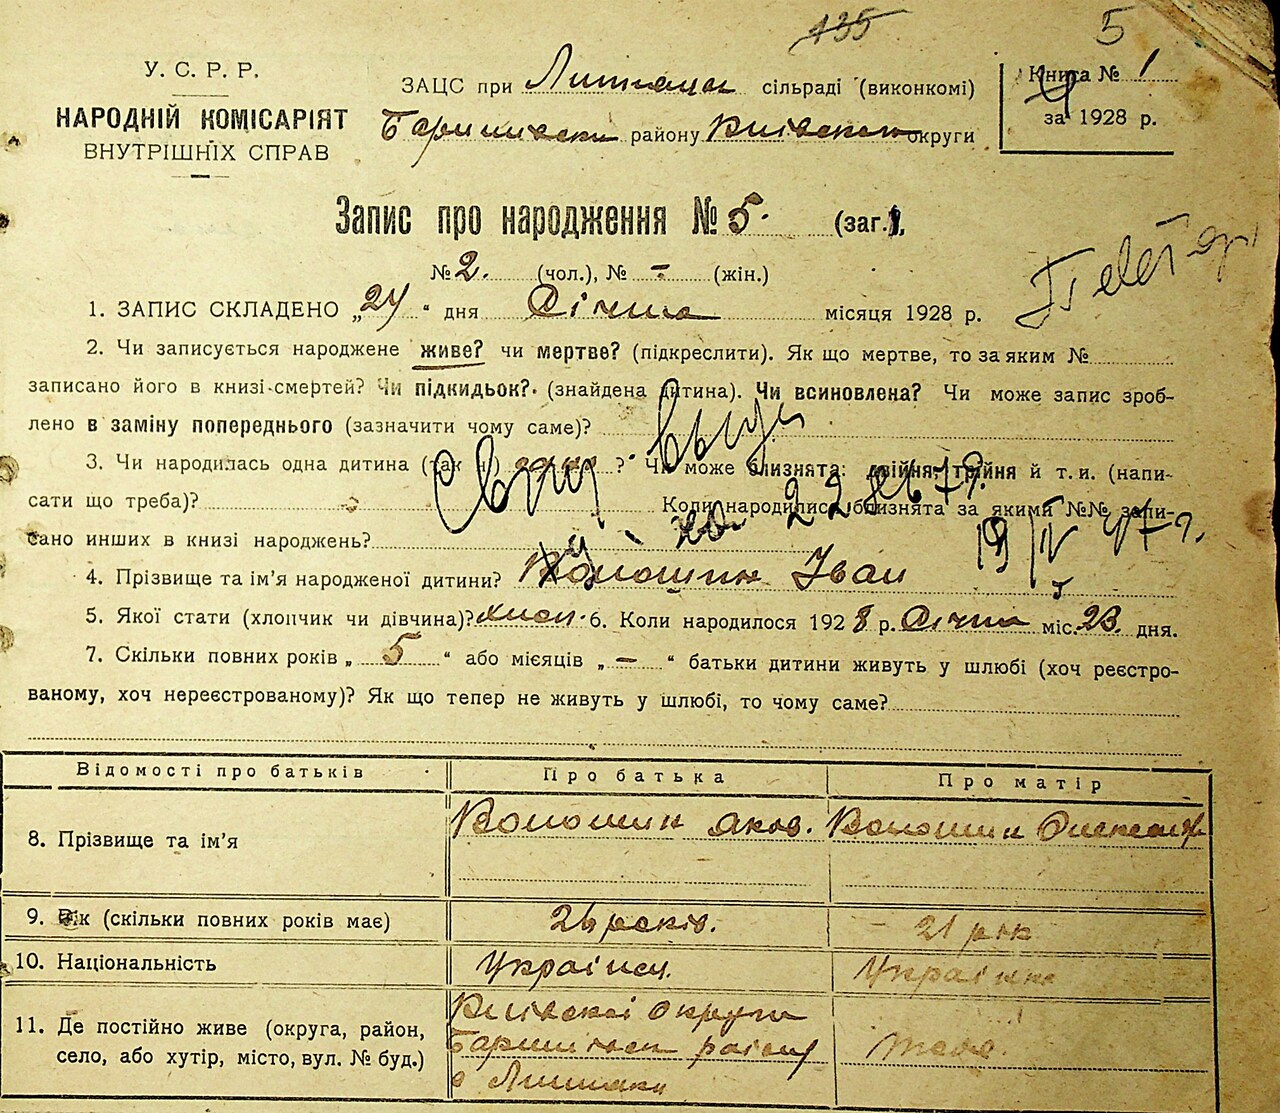 135
5
У. С. Р. Р.
НАРОДНІЙ КОМІСАРІЯТ
ВНУТРІШНІХ СПРАВ
ЗАЦС при сільраді (виконкомі)
району округи
Книга № 1
за 1928 р.
Запис про народження № 5. (заг.),
№ 2. (чол.), № – (жін.)
1. ЗАПИС СКЛАДЕНО „24“ дня Січня місяця 1928 р.
2. Чи записується народжене живе? чи мертве? (підкреслити). Як що мертве, то за яким №
записано його в книзі смертей? Чи підкидьок? (знайдена дитина). Чи всиновлена? Чи може запис зроб-
лено в заміну попереднього (зазначити чому саме)?
3. Чи народилась одна дитина (так чи) одна? Чи може близнята: двійня, трійня й т. и. (напи-
сати що треба)? Коли народились близнята за якими №№ запи-
сано инших в книзі народжень?
22 79.
19/IV 47 г.
4. Прізвище та ім’я народженої дитини? Волошин Іван
5. Якої стати (хлопчик чи дівчина)? 6. Коли народилося 1928 р. Січня міс. 23. дня.
7. Скільки повних років „5“ або місяців „–“ батьки дитини живуть у шлюбі (хоч реєстро-
ваному, хоч нереєстрованому)? Як що тепер не живуть у шлюбі, то чому саме?
Відомості про батьків Про батька Про матір
8. Прізвище та ім’я Волошин Яков. Волошин Олександр
9. Вік (скільки повних років має) 26 років. 21 рік
10. Національність Українец. Українка
11. Де постійно живе (округа, район,
село, або хутір, місто, вул. № буд.)
Київскої Округи
района